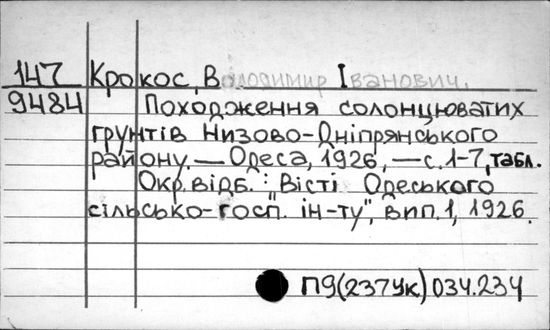 147 Крокос, Володимир Іванович.
9484 Походження солонцюватих
ґрунтів Низово-Дніпрянського
району. — Одеса, 1926, — с. 1-7, табл.
Окр. відб.: "Вісті Одеського
сільсько-госп. ін-ту", вип. 1, 1926.
П9(237Ук) 034.234